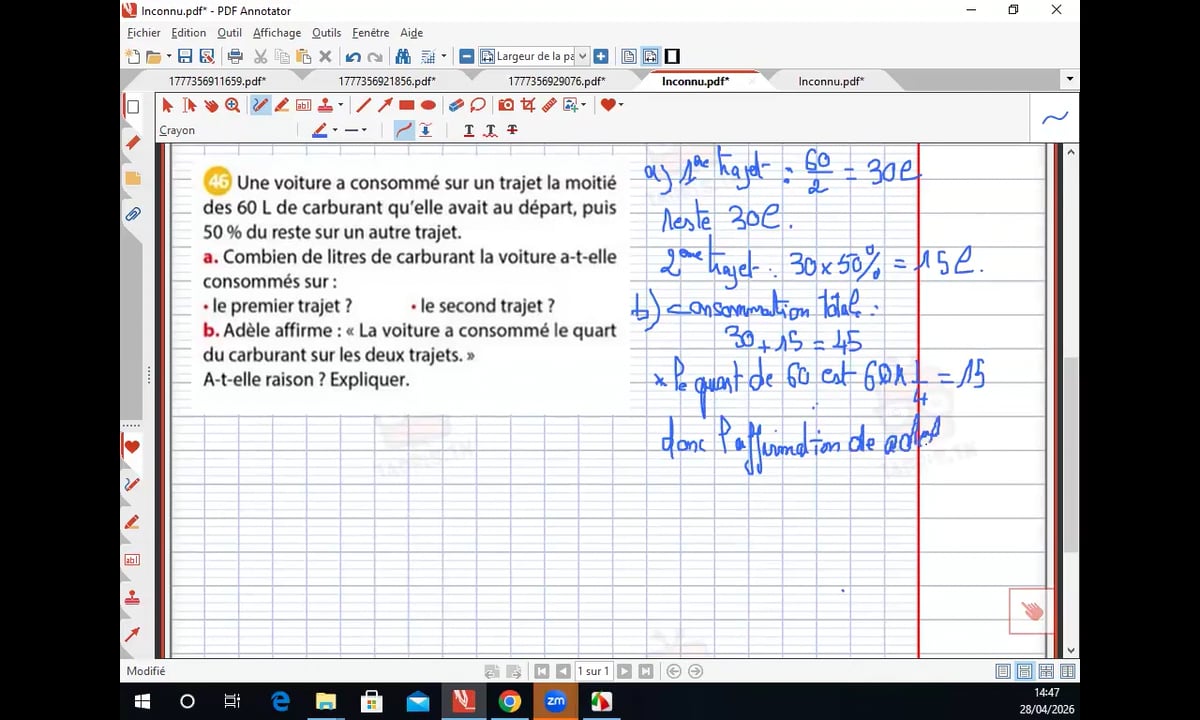 Inconnu.pdf* - PDF Annotator
Fichier Edition Outil Affichage Outils Fenêtre Aide
Largeur de la pa
1777356911659.pdf* 1777356921856.pdf* 1777356929076.pdf* Inconnu.pdf* Inconnu.pdf*
Crayon
46 Une voiture a consommé sur un trajet la moitié
des 60 L de carburant qu'elle avait au départ, puis
50 % du reste sur un autre trajet.
a. Combien de litres de carburant la voiture a-t-elle
consommés sur :
• le premier trajet ? • le second trajet ?
b. Adèle affirme : « La voiture a consommé le quart
du carburant sur les deux trajets. »
A-t-elle raison ? Expliquer.
a) 1ere trajet : 60/2 = 30l
reste 30l.
2eme trajet : 30 x 50% = 15l.
b) consommation total :
30 + 15 = 45
* le quart de 60 est 60 x 1/4 = 15
donc l'affirmation de
Modifié
1 sur 1
zm
14:47
28/04/2026